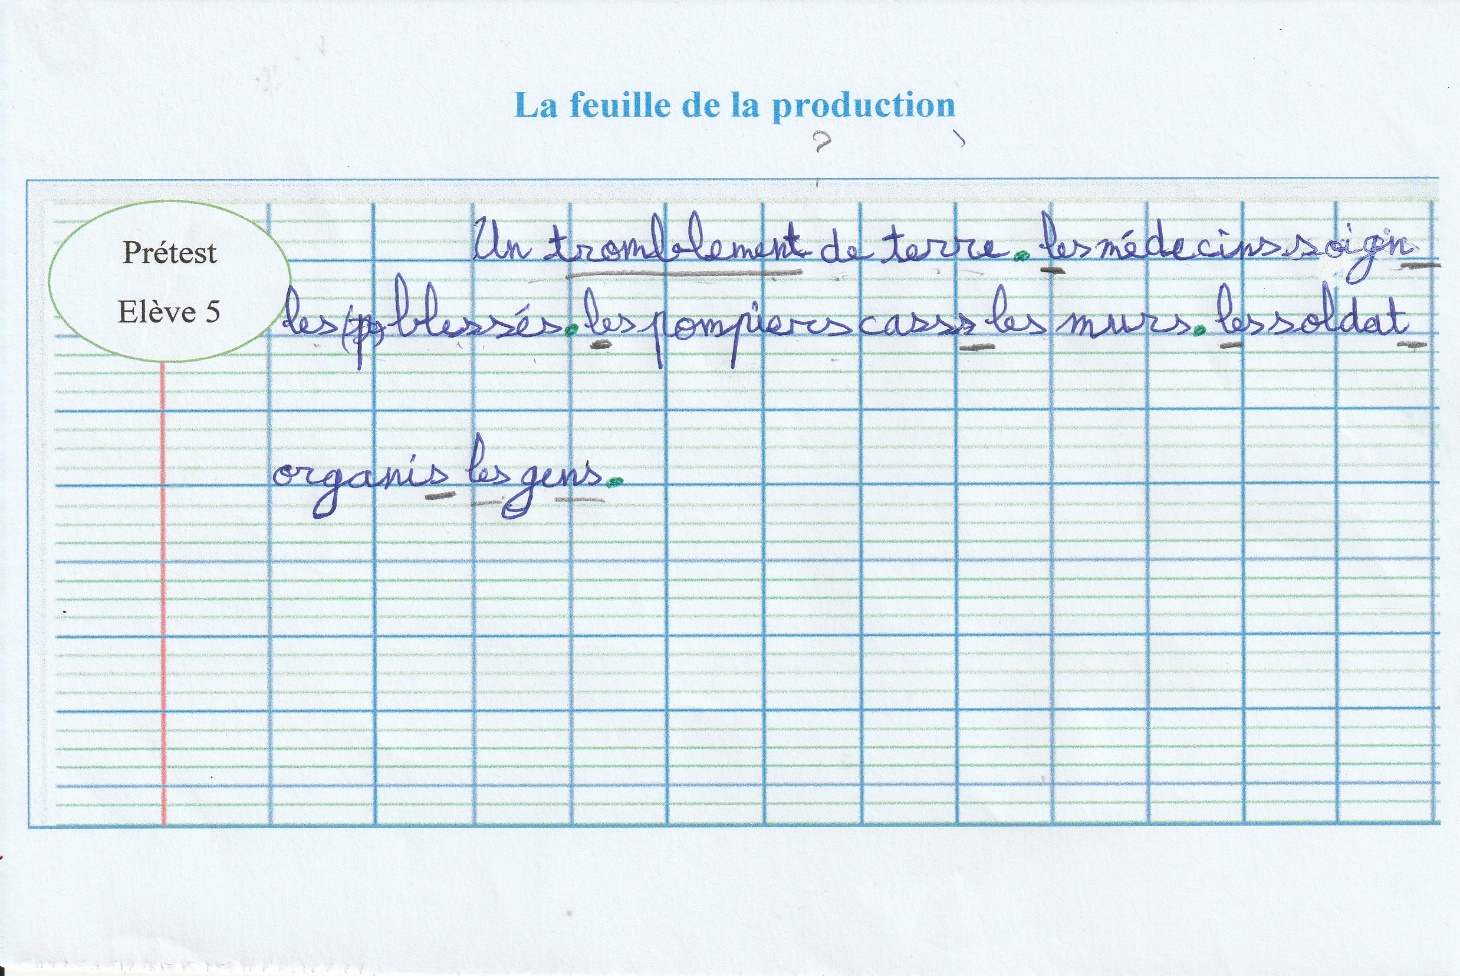 La feuille de la production
Prétest
Elève 5
Un tromblement de terre. les médecins soign
les (p) blessés. les pompiers casss les murs. les soldat
organis les gens.